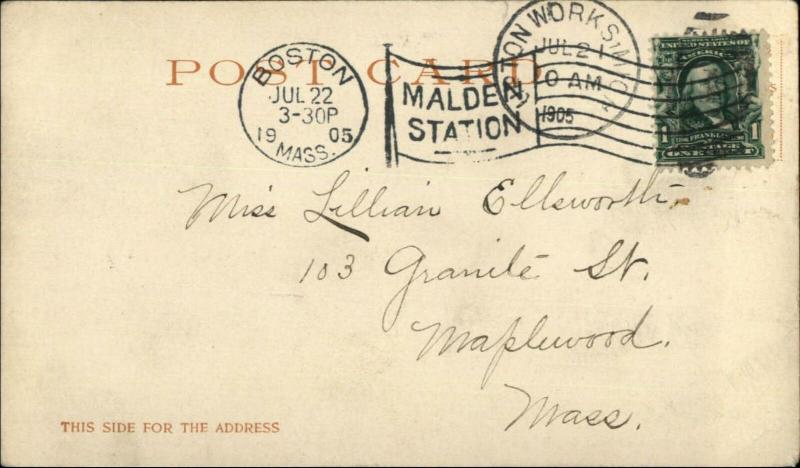 POST CARD
BOSTON
JUL 22
3-30P
19 05
MASS.
MALDEN
STATION
ON WORKS, MICH
JUL 21
0 AM
1905
UNITED STATES OF
AMERICA
1 FRANKLIN 1
ONE
Miss Lillian Ellsworth
103 Granite St.
Maplewood.
Mass.
THIS SIDE FOR THE ADDRESS